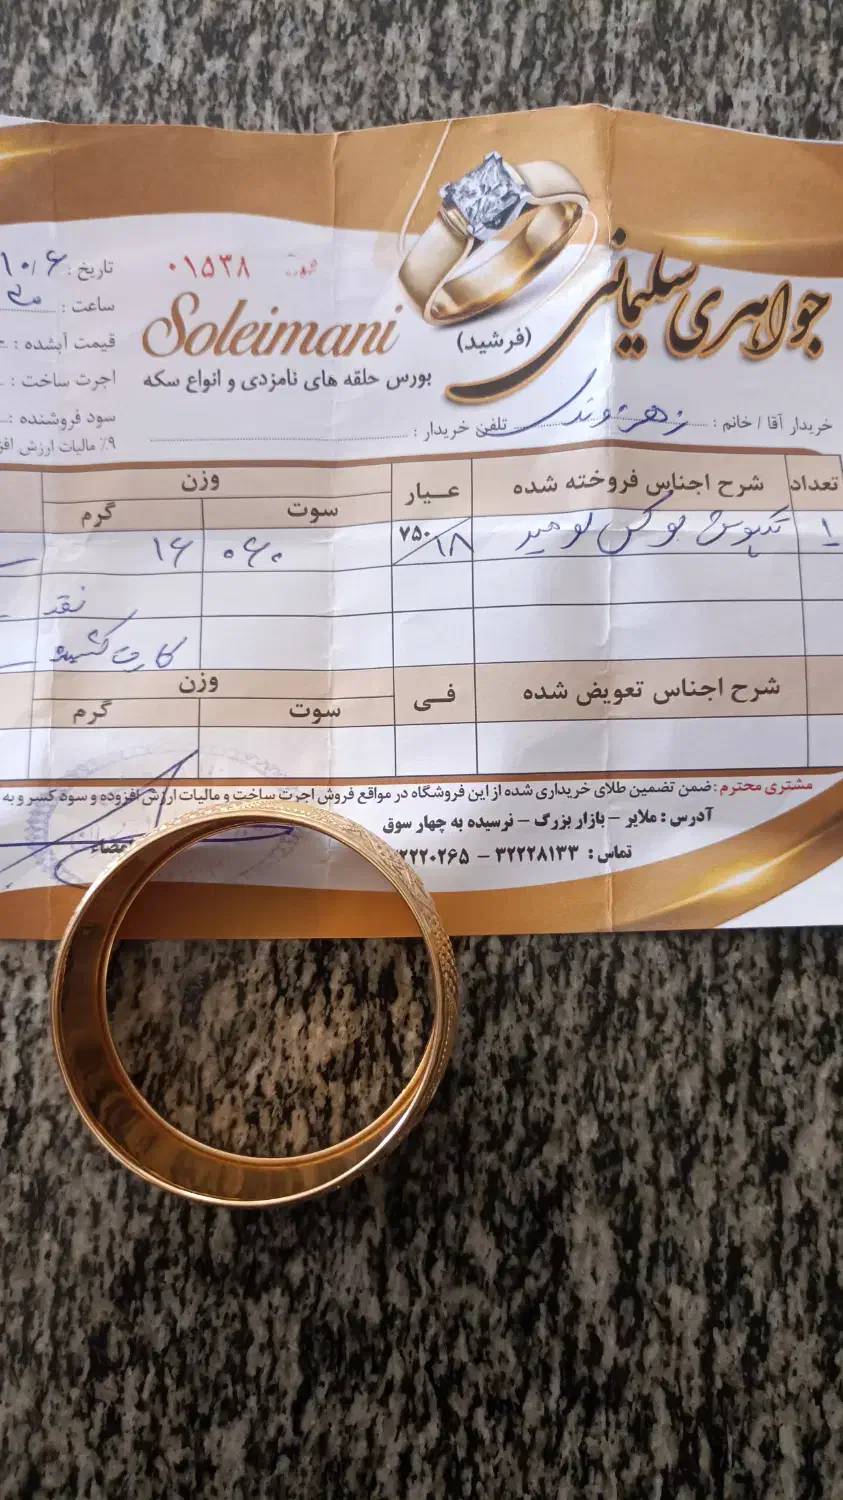 جواهری سلیمانی
(فرشید)
Soleimani
بورس حلقه های نامزدی و انواع سکه
۰۱۵۳۸
تاریخ : ۱۰/۶
ساعت :
قیمت آبشده :
اجرت ساخت :
سود فروشنده :
۹٪ مالیات ارزش افز
خریدار آقا / خانم : تلفن خریدار :
تعداد شرح اجناس فروخته شده عیار وزن
سوت گرم
۱ تکپوش ۷۵۰/۱۸ ۰۶۰ ۱۶
نقد
کارت کشیده
شرح اجناس تعویض شده فی وزن
سوت گرم
مشتری محترم : ضمن تضمین طلای خریداری شده از این فروشگاه در مواقع فروش اجرت ساخت و مالیات ارزش افزوده و سود کسر و به
آدرس : ملایر – بازار بزرگ – نرسیده به چهار سوق
تماس : ۳۲۲۲۸۱۳۳ – ۲۲۲۰۲۶۵
امضاء